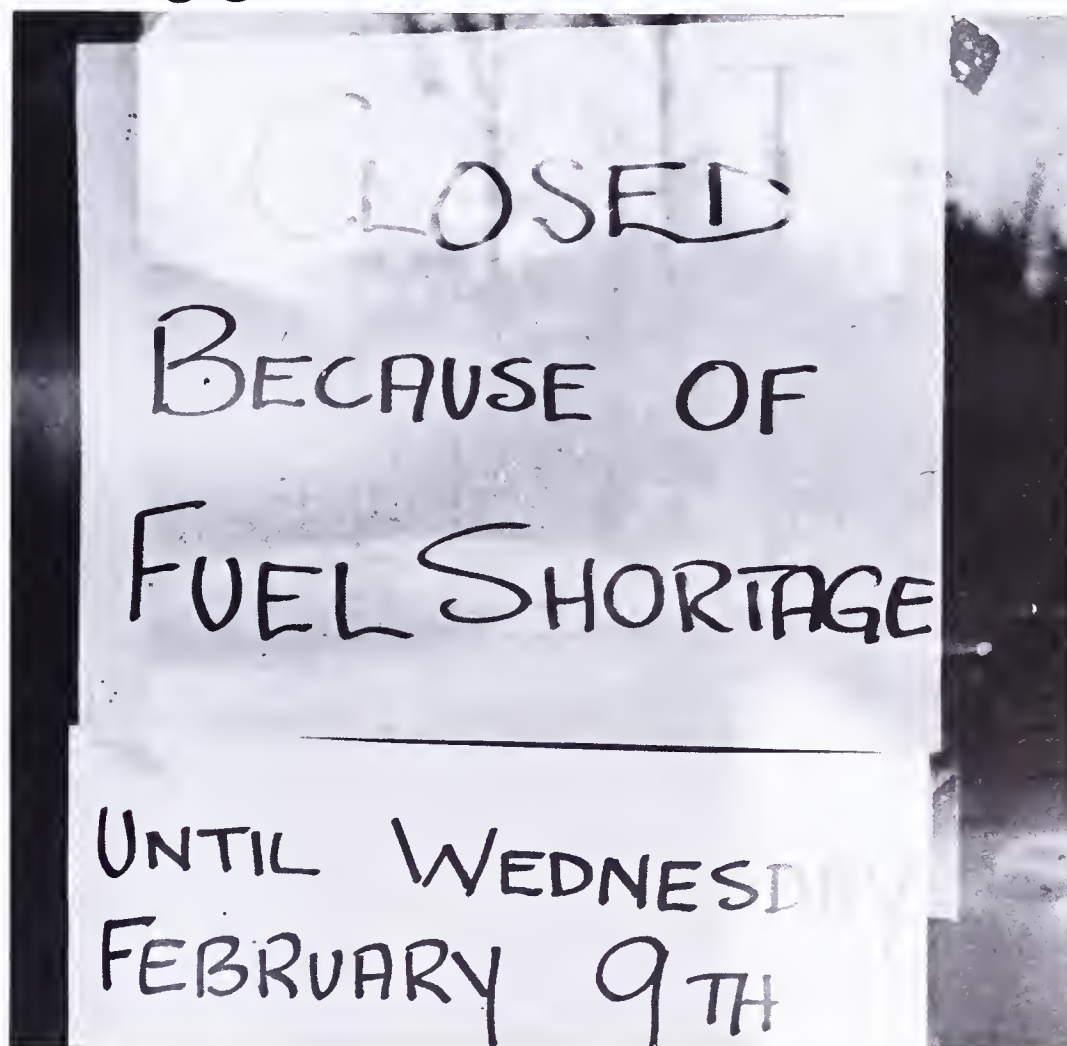 CLOSED
BECAUSE OF
FUEL SHORTAGE
UNTIL WEDNESDAY
FEBRUARY 9TH